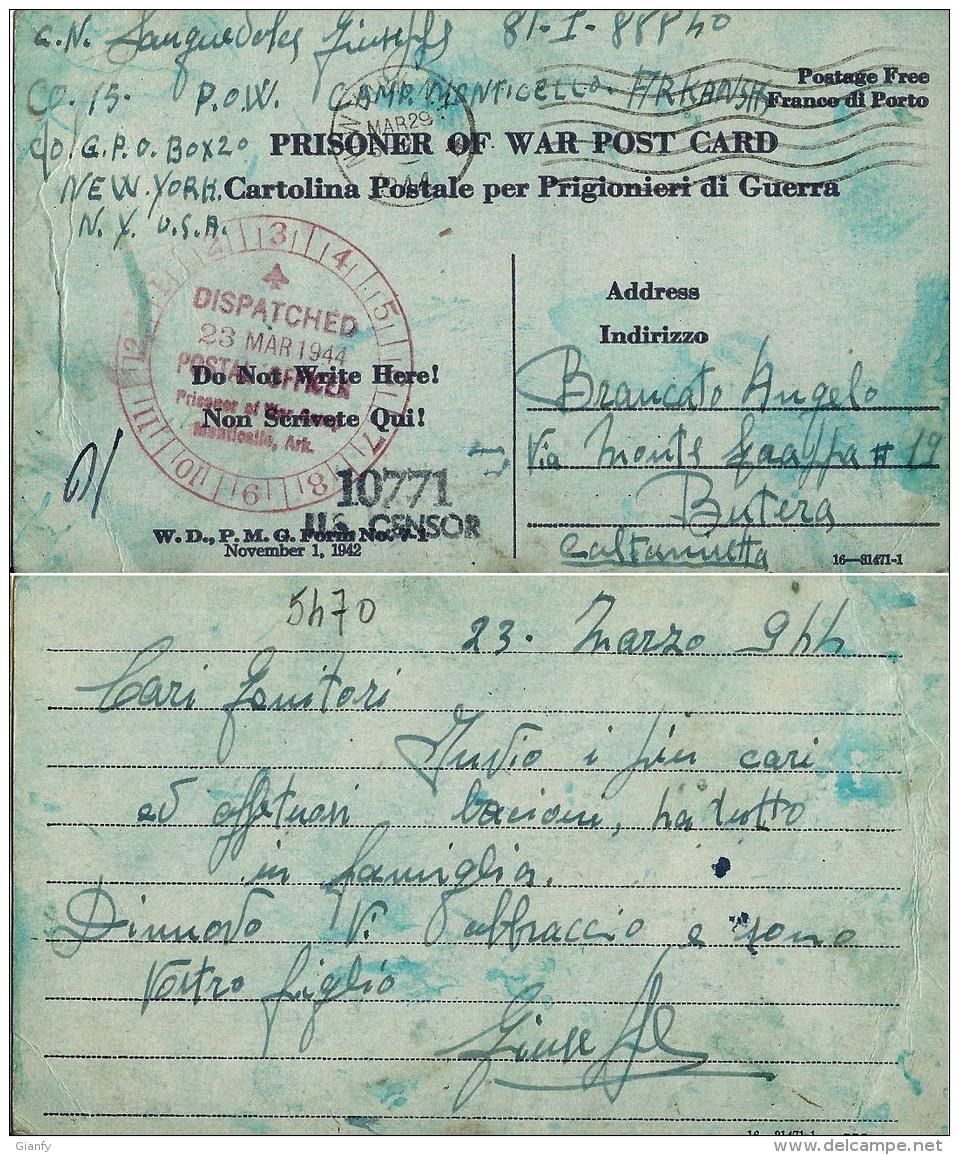 Giuseppe 81-I-88840
Co. 15. P.O.W. CAMP. MONTICELLO. ARKANSAS
Postage Free
Franco di Porto
c/o G.P.O. BOX 20
MAR 29
1944
PRISONER OF WAR POST CARD
NEW. YORK.
Cartolina Postale per Prigionieri di Guerra
N. Y. U.S.A.
1 2 3 4 5 7 8 9 10 11 12
DISPATCHED
23 MAR 1944
POSTAL OFFICER
Prisoner of War Camp
Monticello, Ark.
Do Not Write Here!
Non Scrivete Qui!
Address
Indirizzo
Brancato Angelo
Via Monte # 19
Butera
Caltanisetta
10771
U.S. CENSOR
W. D., P. M. G. Form No. 4-1
November 1, 1942
16—31471-1
5470
23. Marzo 944
Cari genitori
Invio i più cari
ed affetuosi bacioni, ha tutto
in famiglia.
Dinuovo Vi abbraccio e sono
Vostro figlio
Giuseppe
16—31471-1
Gianfy
www.delcampe.net